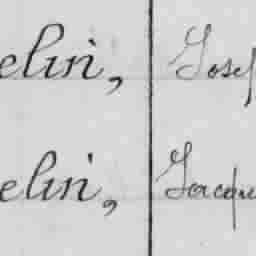 elin, Josep
elin, Jacque